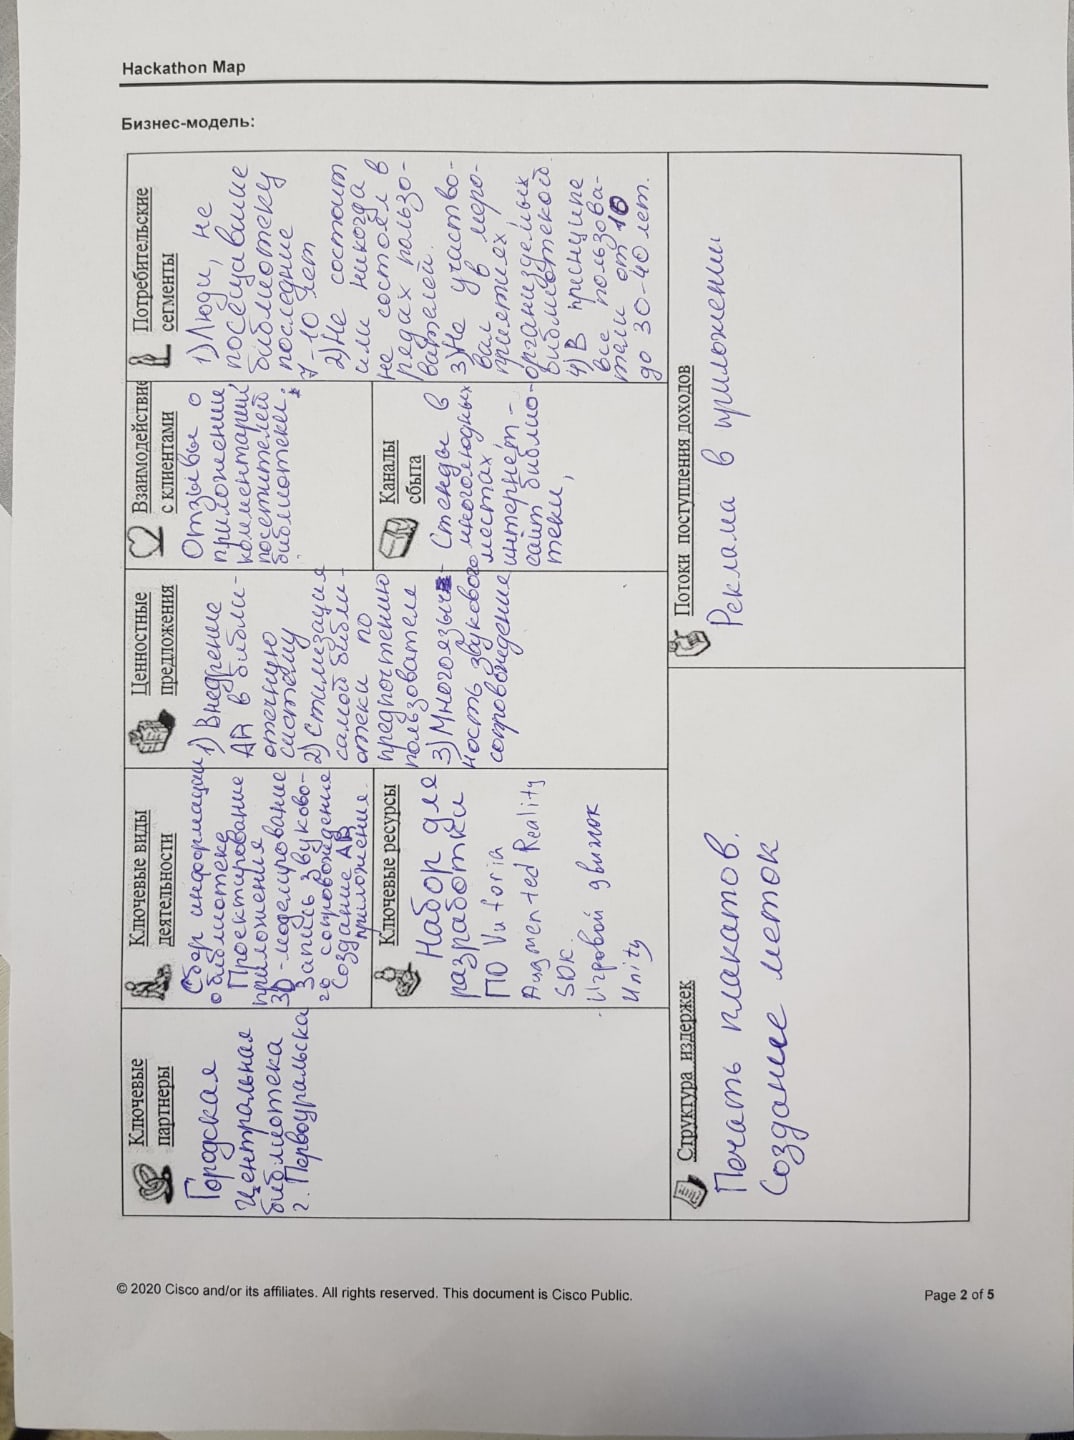 Hackathon Map
Бизнес-модель:
Ключевые
партнеры
Городская
Центральная
библиотека
г. Первоуральска
Ключевые виды
деятельности
Сбор информации
о библиотеке
Проектирование
приложения
3D-моделирование
Запись звуково-
го сопровождение
Создание AR
приложения.
Ключевые ресурсы
Набор для
разработки
ПО Vuforia
Augmented Reality
SDK.
Игровой движок
Unity
Ценностные
предложения
1) Внедрение
AR в библи-
отечную
систему
2) стилизация
самой библи-
отеки по
предпочтению
пользователя
3) Многоязыч-
ность звукового
сопровождение
Взаимодействие
с клиентами
Отзывы о
приложении
комментарии
посетителей
библиотеки.
Каналы
сбыта
- Стенды в
многолюдных
местах,
интернет-
сайт библио-
теки,
Потребительские
сегменты
1) Люди, не
посещавшие
библиотеку
последние
7-10 лет
2) Не состоит
или никогда
не состоял в
рядах пользо-
вателей.
3) Не участво-
вал в меро-
приятиях
организуемых
библиотекой.
4) В принципе
все пользова-
тели от 10
до 30-40 лет.
Структура издержек
Печать плакатов.
Создание меток
Потоки поступления доходов
Реклама в приложении
© 2020 Cisco and/or its affiliates. All rights reserved. This document is Cisco Public.
Page 2 of 5